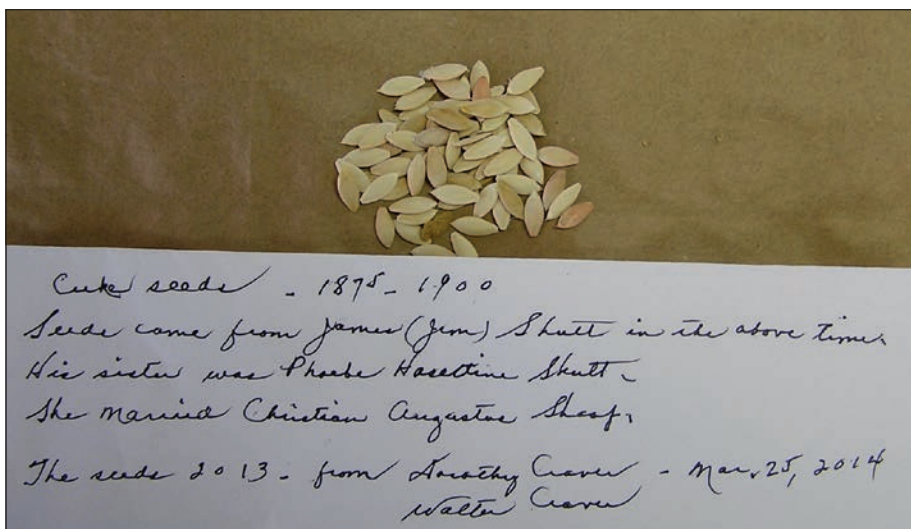 Cuke seeds - 1875 - 1900
Seeds came from James (Jim) Shutt in the above time.
His sister was Phoebe Hasettine Shutt.
She married Christian Augustus Shoaf.
The seeds 2013 - from Dorothy Craver - Mar. 25, 2014
Walter Craver